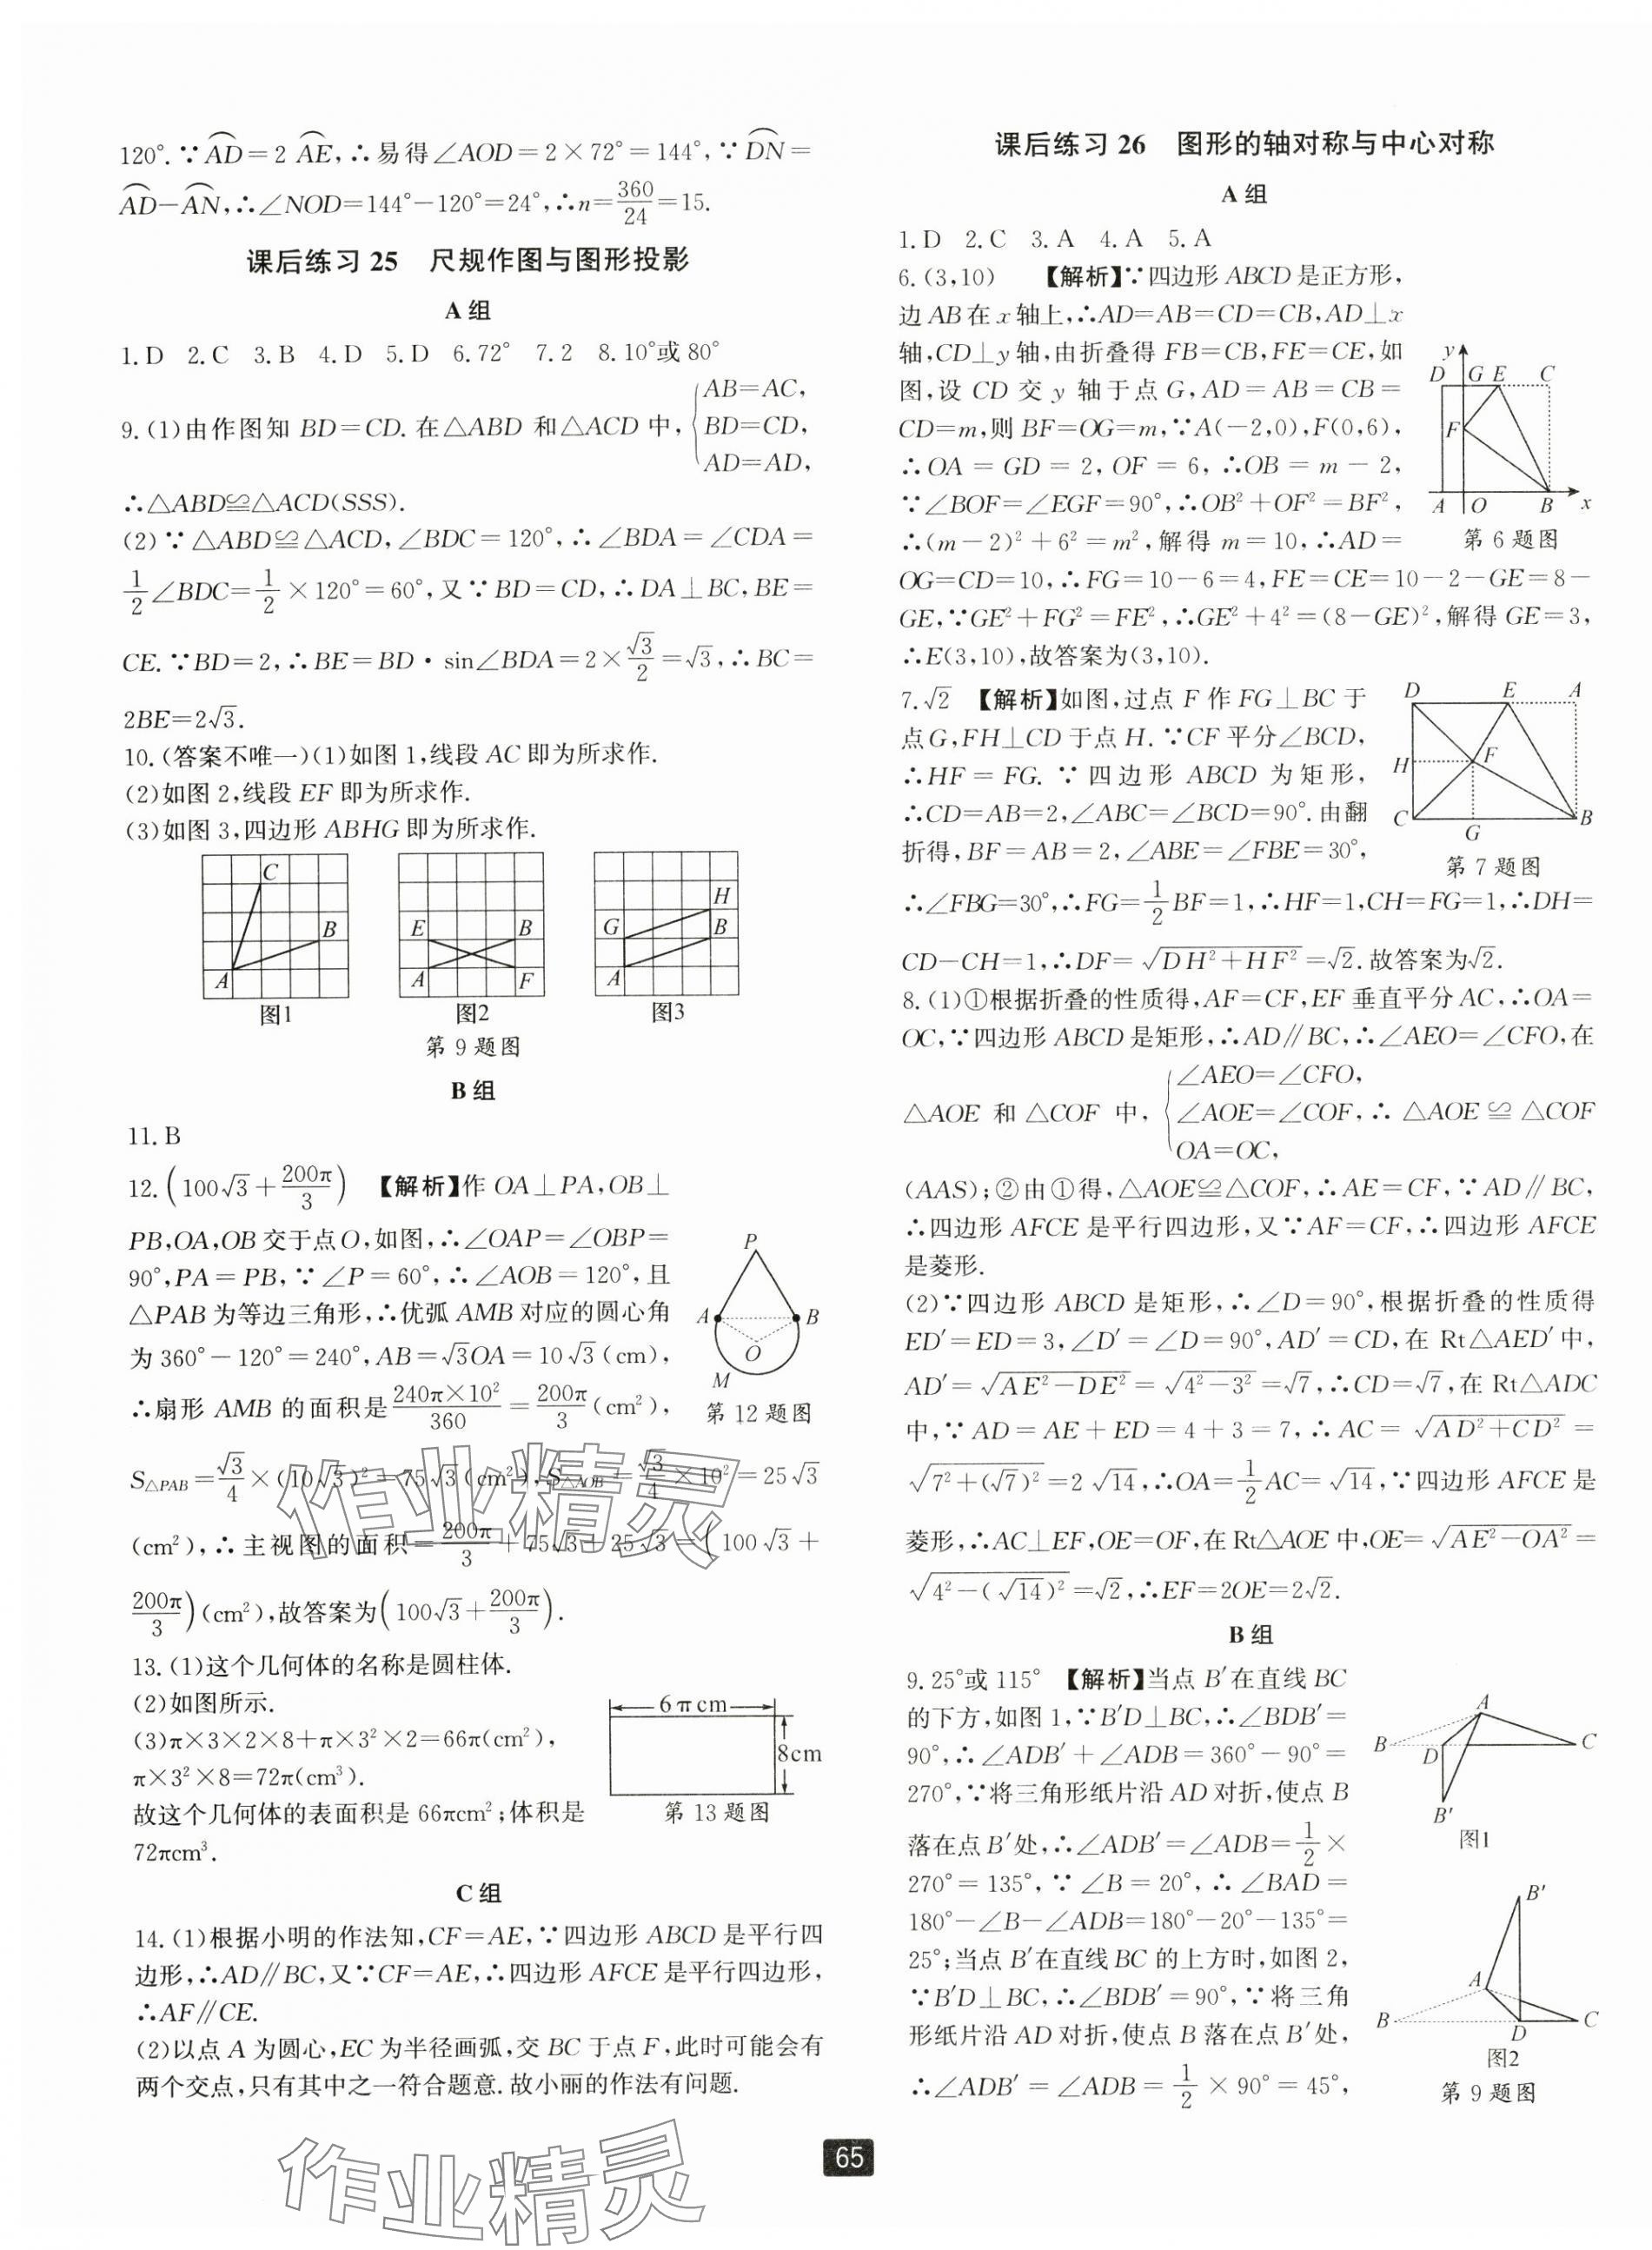 120°.∵AD=2 AE,∴易得∠AOD=2×72°=144°,∵DN=
AD-AN,∴∠NOD=144°-120°=24°,∴n=360/24=15.
课后练习 25 尺规作图与图形投影
A 组
1.D 2.C 3.B 4.D 5.D 6.72° 7.2 8.10°或80°
9.(1)由作图知 BD=CD.在△ABD 和△ACD 中,{AB=AC,
BD=CD,
AD=AD,
∴△ABD≌△ACD(SSS).
(2)∵△ABD≌△ACD,∠BDC=120°,∴∠BDA=∠CDA=
1/2∠BDC=1/2×120°=60°,又∵BD=CD,∴DA⊥BC,BE=
CE.∵BD=2,∴BE=BD·sin∠BDA=2×√3/2=√3,∴BC=
2BE=2√3.
10.(答案不唯一)(1)如图 1,线段 AC 即为所求作.
(2)如图 2,线段 EF 即为所求作.
(3)如图 3,四边形 ABHG 即为所求作.
C B A
图1
E B A F
图2
H G B A
图3
第 9 题图
B 组
11.B
12.(100√3+200π/3) 【解析】作 OA⊥PA,OB⊥
PB,OA,OB 交于点 O,如图,∴∠OAP=∠OBP=
90°,PA=PB,∵∠P=60°,∴∠AOB=120°,且
△PAB 为等边三角形,∴优弧 AMB 对应的圆心角
为 360°-120°=240°,AB=√3OA=10√3(cm),
∴扇形 AMB 的面积是240π×10²/360=200π/3(cm²),
P A B O M
第 12 题图
S△PAB=√3/4×(10√3)²=75√3(cm²),S△AOB=√3/4×10²=25√3
(cm²),∴主视图的面积=200π/3+75√3+25√3=(100√3+
200π/3)(cm²),故答案为(100√3+200π/3).
13.(1)这个几何体的名称是圆柱体.
(2)如图所示.
(3)π×3×2×8+π×3²×2=66π(cm²),
π×3²×8=72π(cm³).
故这个几何体的表面积是 66πcm²;体积是
72πcm³.
6πcm
8cm
第 13 题图
C 组
14.(1)根据小明的作法知,CF=AE,∵四边形 ABCD 是平行四
边形,∴AD∥BC,又∵CF=AE,∴四边形 AFCE 是平行四边形,
∴AF∥CE.
(2)以点 A 为圆心,EC 为半径画弧,交 BC 于点 F,此时可能会有
两个交点,只有其中之一符合题意.故小丽的作法有问题.
课后练习 26 图形的轴对称与中心对称
A 组
1.D 2.C 3.A 4.A 5.A
6.(3,10) 【解析】∵四边形 ABCD 是正方形,
边 AB 在 x 轴上,∴AD=AB=CD=CB,AD⊥x
轴,CD⊥y 轴,由折叠得 FB=CB,FE=CE,如
图,设 CD 交 y 轴于点 G,AD=AB=CB=
CD=m,则 BF=OG=m,∵A(-2,0),F(0,6),
∴OA=GD=2,OF=6,∴OB=m-2,
∵∠BOF=∠EGF=90°,∴OB²+OF²=BF²,
∴(m-2)²+6²=m²,解得 m=10,∴AD=
y D G E C F A O B x
第 6 题图
OG=CD=10,∴FG=10-6=4,FE=CE=10-2-GE=8-
GE,∵GE²+FG²=FE²,∴GE²+4²=(8-GE)²,解得 GE=3,
∴E(3,10),故答案为(3,10).
7.√2 【解析】如图,过点 F 作 FG⊥BC 于
点 G,FH⊥CD 于点 H.∵CF 平分∠BCD,
∴HF=FG.∵四边形 ABCD 为矩形,
∴CD=AB=2,∠ABC=∠BCD=90°.由翻
折得,BF=AB=2,∠ABE=∠FBE=30°,
D E A H F C G B
第 7 题图
∴∠FBG=30°,∴FG=1/2BF=1,∴HF=1,CH=FG=1,∴DH=
CD-CH=1,∴DF=√(DH²+HF²)=√2.故答案为√2.
8.(1)①根据折叠的性质得,AF=CF,EF 垂直平分 AC,∴OA=
OC,∵四边形 ABCD 是矩形,∴AD∥BC,∴∠AEO=∠CFO,在
△AOE 和 △COF 中,{∠AEO=∠CFO,
∠AOE=∠COF,∴△AOE≌△COF
OA=OC,
(AAS);②由①得,△AOE≌△COF,∴AE=CF,∵AD∥BC,
∴四边形 AFCE 是平行四边形,又∵AF=CF,∴四边形 AFCE
是菱形.
(2)∵四边形 ABCD 是矩形,∴∠D=90°,根据折叠的性质得
ED′=ED=3,∠D′=∠D=90°,AD′=CD,在 Rt△AED′中,
AD′=√(AE²-DE²)=√(4²-3²)=√7,∴CD=√7,在 Rt△ADC
中,∵AD=AE+ED=4+3=7,∴AC=√(AD²+CD²)=
√(7²+(√7)²)=2√14,∴OA=1/2AC=√14,∵四边形 AFCE 是
菱形,∴AC⊥EF,OE=OF,在 Rt△AOE 中,OE=√(AE²-OA²)=
√(4²-(√14)²)=√2,∴EF=2OE=2√2.
B 组
9.25°或 115° 【解析】当点 B′在直线 BC
的下方,如图 1,∵B′D⊥BC,∴∠BDB′=
90°,∴∠ADB′+∠ADB=360°-90°=
270°,∵将三角形纸片沿 AD 对折,使点 B
落在点 B′处,∴∠ADB′=∠ADB=1/2×
270°=135°,∵∠B=20°,∴∠BAD=
180°-∠B-∠ADB=180°-20°-135°=
25°;当点 B′在直线 BC 的上方时,如图 2,
∵B′D⊥BC,∴∠BDB′=90°,∵将三角
形纸片沿 AD 对折,使点 B 落在点 B′处,
∴∠ADB′=∠ADB=1/2×90°=45°,
A B D C B′
图1
B′ A B D C
图2
第 9 题图
65
作业精灵
作业精灵